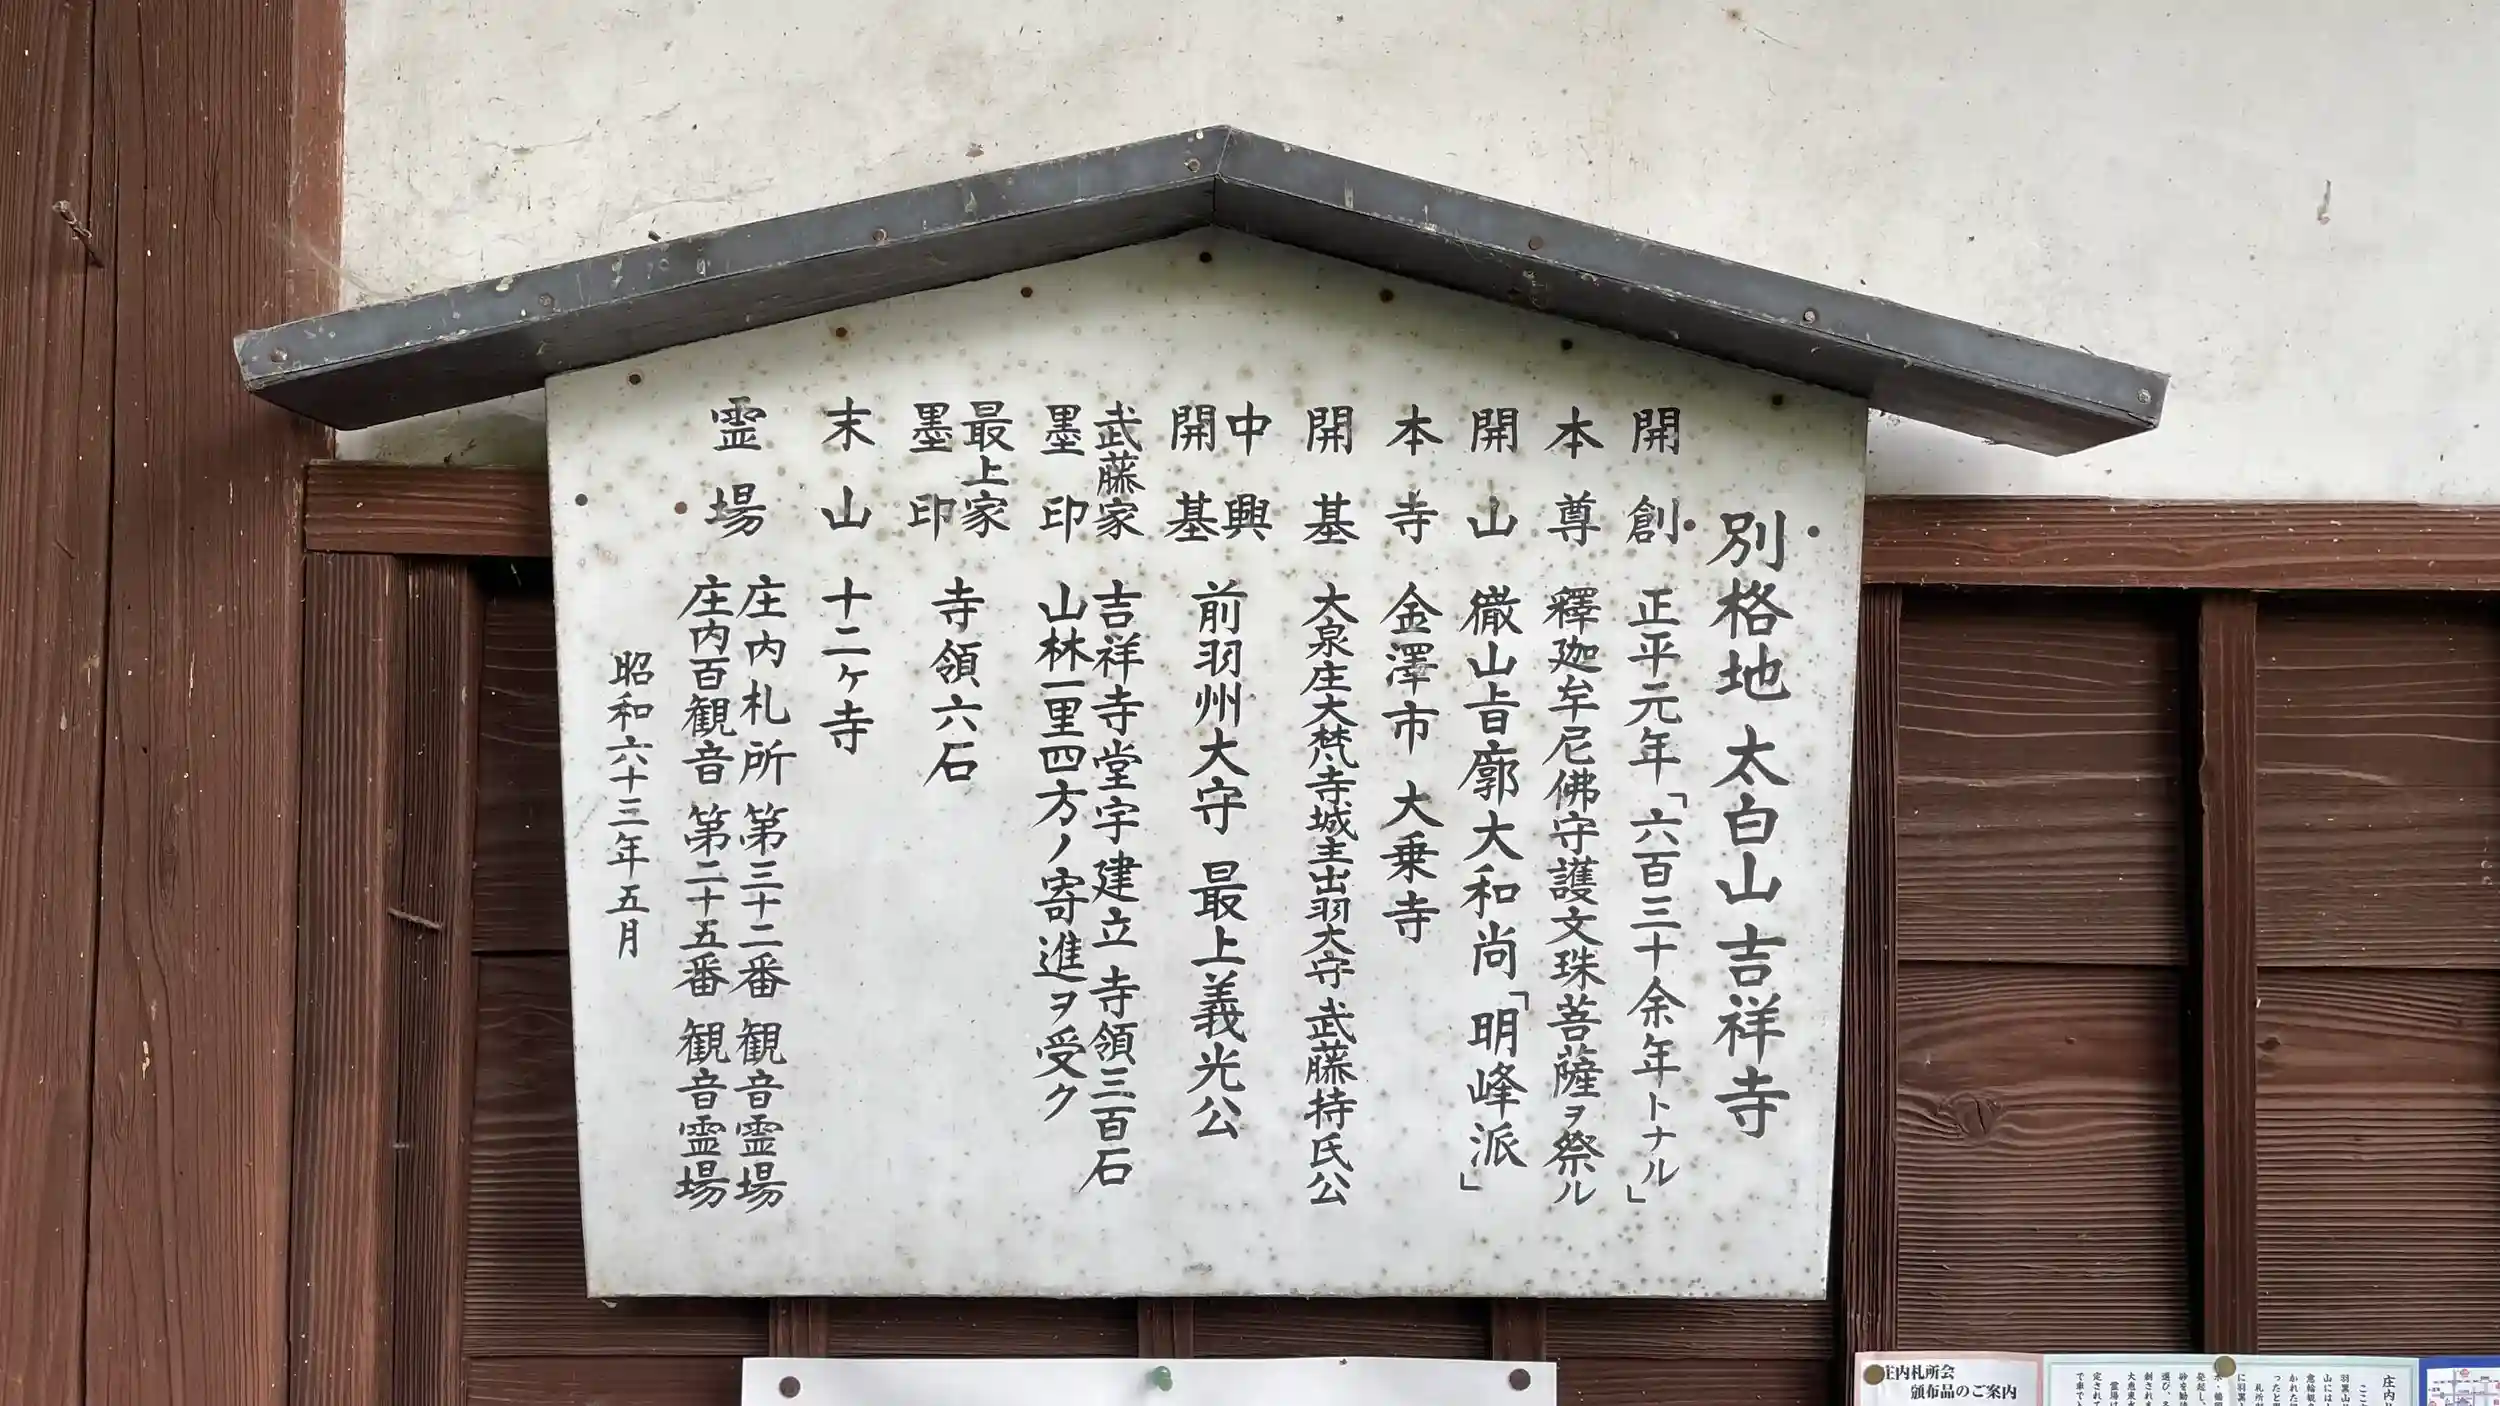 別格地 太白山 吉祥寺
開創 正平元年「六百三十余年トナル」
本尊 釋迦牟尼佛守護文珠菩薩ヲ祭ル
開山 徹山旨廓大和尚「明峰派」
本寺 金澤市 大乗寺
開基 大泉庄大梵寺城主出羽大守 武藤持氏公
中興
開基 前羽州大守 最上義光公
武藤家
墨印 吉祥寺堂宇建立 寺領三百石
山林一里四方ノ寄進ヲ受ク
最上家
墨印 寺領六石
末山 十二ヶ寺
霊場 庄内札所 第三十二番 観音霊場
庄内百観音 第二十五番 観音霊場
昭和六十三年五月
庄内札所会
頒布品のご案内